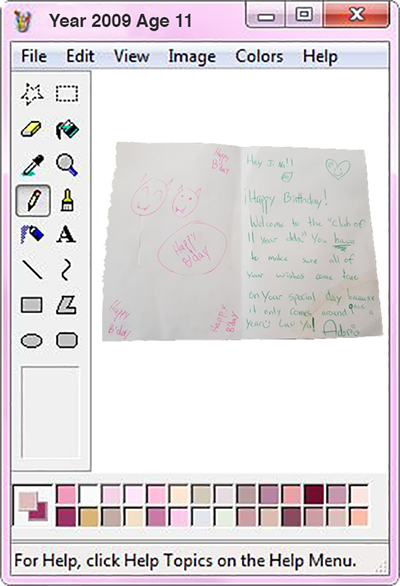 Year 2009 Age 11
File Edit View Image Colors Help
Happy
B'day
Happy
B'day
Happy
B'day
Happy
B'day
Hey J.
¡Happy Birthday!
Welcome to the "club of
11 year olds." You have
to make sure all of
your wishes come true
on your special day because
it only comes around once a
year! Luv Ya!
For Help, click Help Topics on the Help Menu.